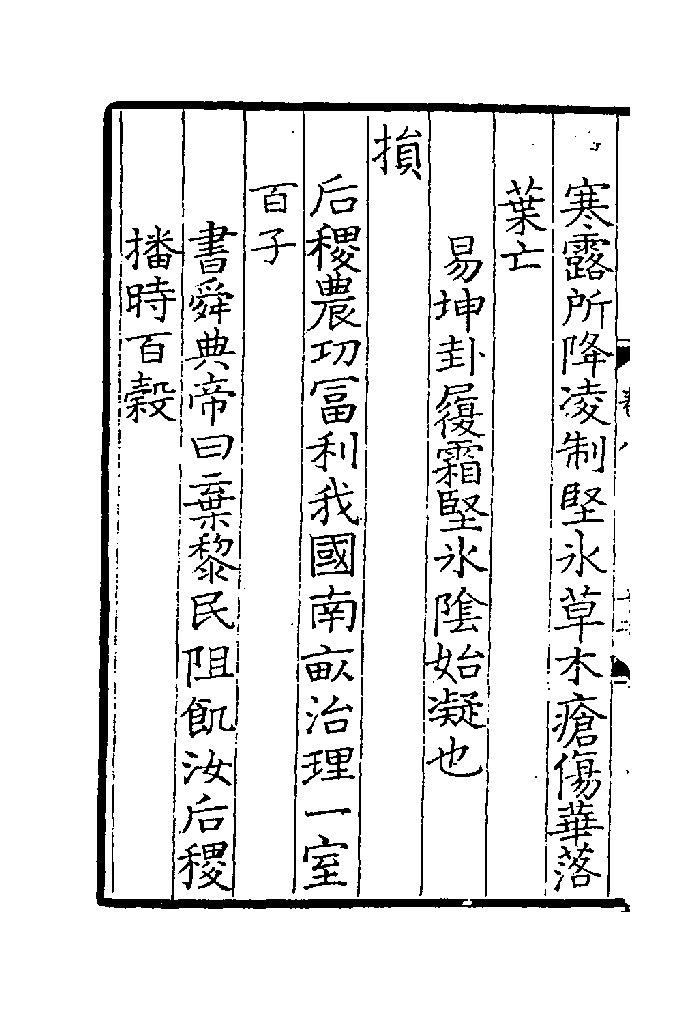 寒露所降凌制堅氷草木瘡傷華落
葉亡
易坤卦履霜堅氷陰始凝也
損
后稷農功冨利我國南畝治理一室
百子
書舜典帝曰棄黎民阻飢汝后稷
播時百穀